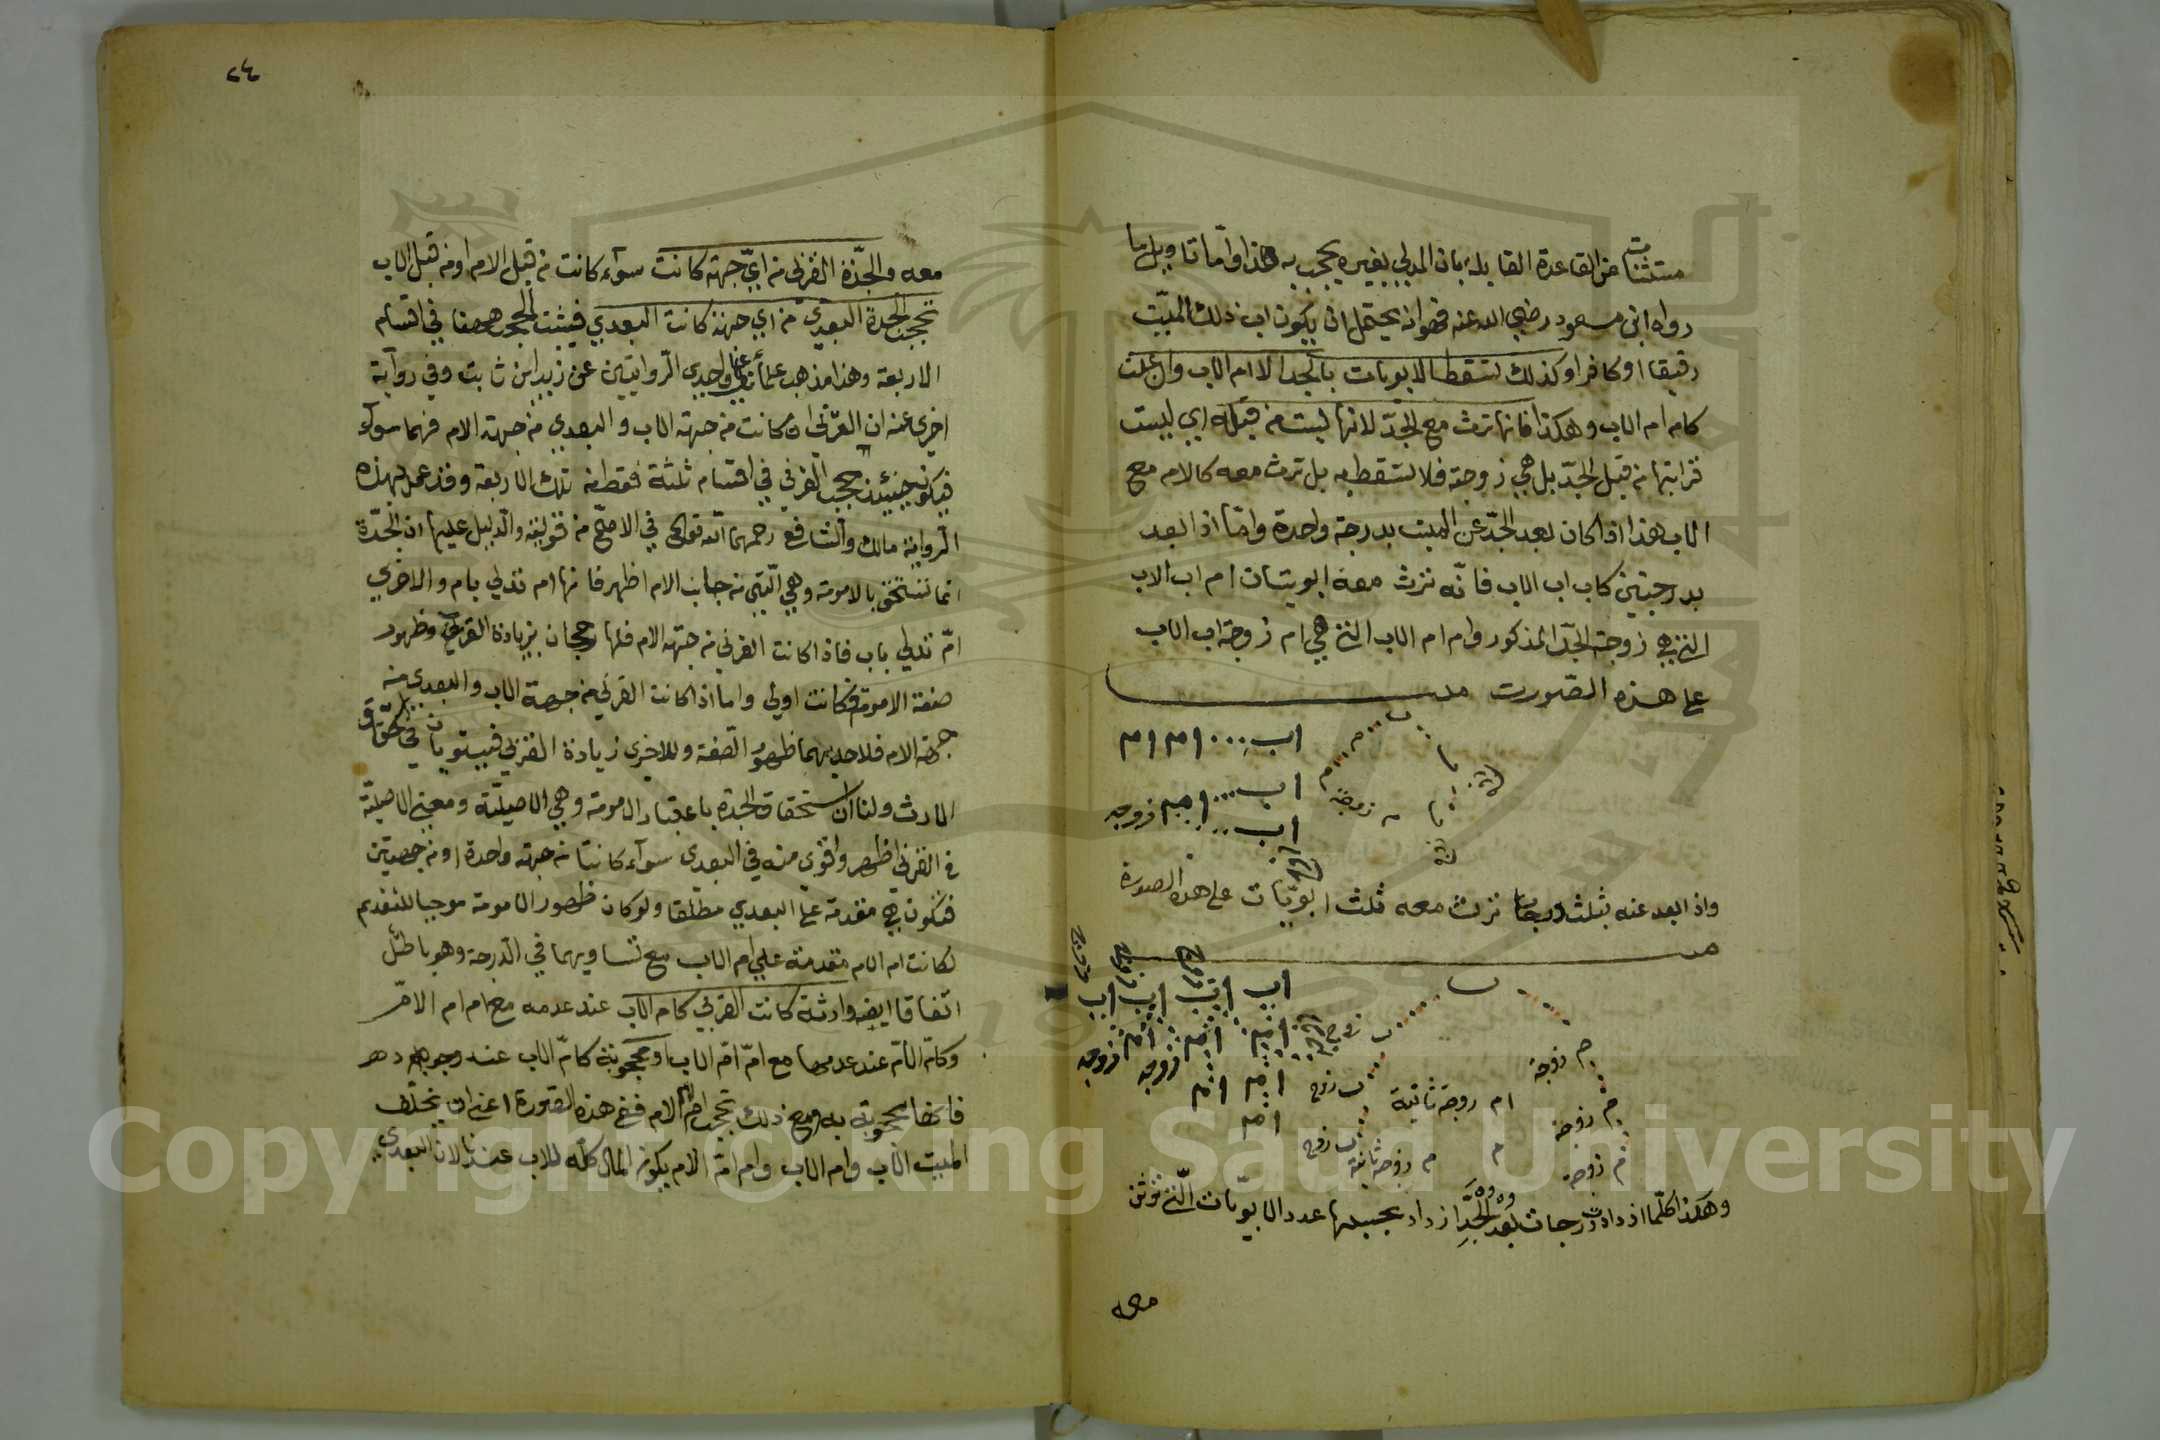 مستثنات عن القاعدة القايلة بان المدلي بغيره يحجب به هذا واما تاويل ما
رواه ابن مسعود رضي الله عنه فهو انه يحتمل ان يكون اب ذلك الميت
رقيقا او كافرا وكذلك تسقط الابويات بالجد الا ام الاب وان علت
كام ام الاب وهكذا فانها ترث مع الجد لانها ليست من قبله اي ليست
قرابتها من قبل الجد بل هي زوجته فلا تسقط به بل ترث معه كالام مع
الاب هذا اذا كان بعد الجد عن الميت بدرجة واحدة واما اذا بعد
بدرجتين كاب اب الاب فانه ترث معه ابويتان ام اب الاب
التي هي زوجة الجد المذكور وام ام الاب التي هي ام زوجة اب الاب
على هذه الصورت
اب ام ام
اب ام زوجه
اب
واذا بعد عنه بثلث درجات ترث معه ثلث ابويات على هذه الصورة
اب اب اب اب
م زوجة
ام زوجة ثانية
م زوجة
م زوجة ثانية
م زوجة
وهكذا كلما ازدادت درجات بعد الجد ازداد بحسبها عدد الابويات التي ترثن
معه
٢٤
معه والجدة القربى من اي جهة كانت سوآء كانت من قبل الام او من قبل الاب
تحجب الجدة البعدي من اي جهة كانت البعدي فيثبت الحجب ههنا في اقسام
الاربعة وهذا مذهب علمائنا واحدي الروايتين عن زيد ابن ثابت وفي رواية
اخري عنه ان القربى ان كانت من جهة الاب والبعدي من جهة الام فهما سوآء
فيكون حينئذ حجب القربي في اقسام ثلثة فقط من تلك الاربعة وقد عمل بهذه
الرواية مالك والشافع رحمهما الله تعالى في الاصح من قوليه والدليل عليها ان الجدة
انما تستحق بالامومة وهي التي من جانب الام اظهر فانها ام تدلي بام والاخري
ام تدلي باب فاذا كانت القربي من جهة الام فلها رجحان بزيادة القربي وظهور
صفة الامومة فكانت اولي واما اذا كانت القربي من جهة الاب والبعدي من
جهة الام فلاحديهما ظهور الصفة وللاخري زيادة القربي فيستويان في استحقاق
الارث ولنا ان استحقاق الجدة باعتبار الامومة وهي الاصيلة ومعنى الاصيلة
في القربي اظهر واقوي منه في البعدي سوآء كانتا من جهة واحدة او من جهتين
فتكون هي مقدمة على البعدي مطلقا ولو كان ظهور الامومة موجبا للتقديم
لكانت ام الام مقدمة على ام الاب مع تساويهما في الدرجة وهو باطل
اتفاقا ايضه وارثة كانت القربي كام الاب عند عدمه مع ام ام الام
وكام الام عند عدمها مع ام ام الاب او محجوبة كام الاب عند وجوده
فانها محجوبة به ومع ذلك تحجب ام ام الام ففي هذه الصورة اعني ان يخلف
الميت الاب وام الاب وام ام الام يكون المال كله للاب عندنا لان البعدي